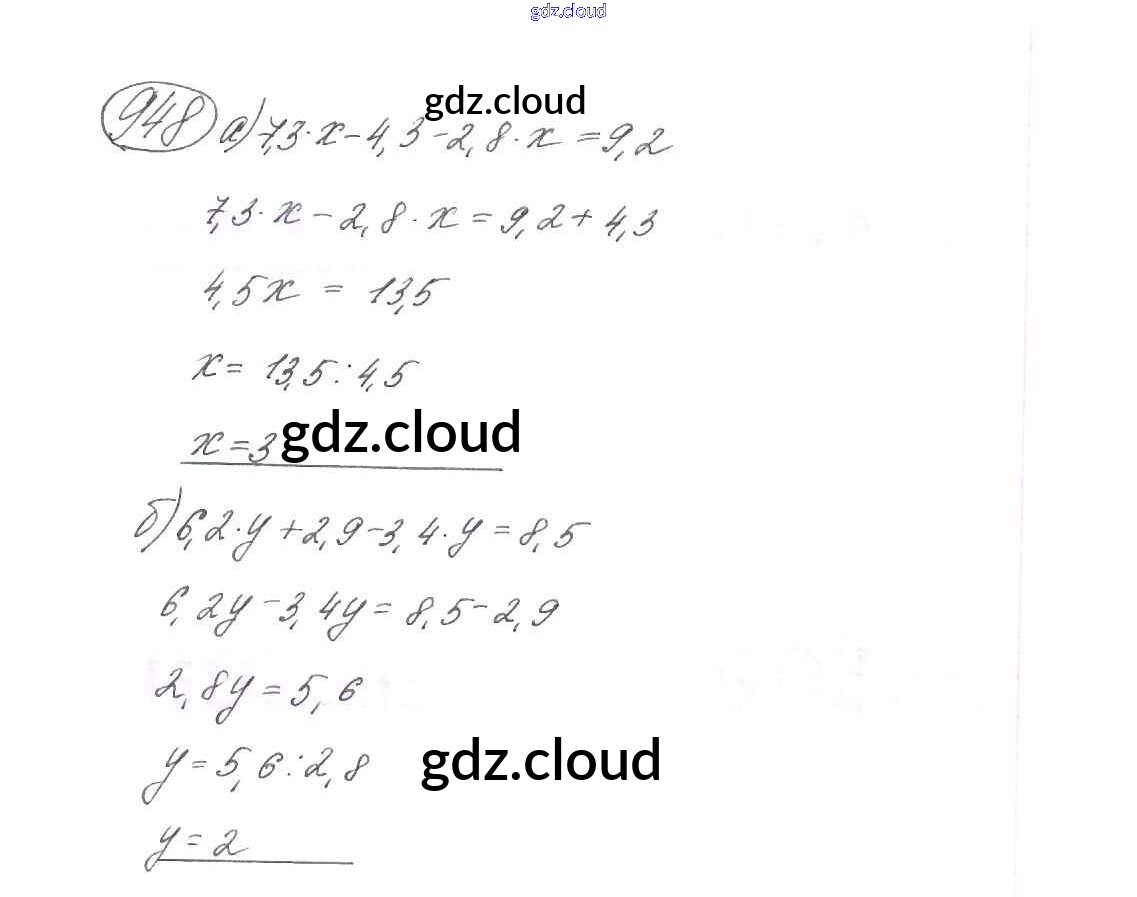 gdz.cloud
gdz.cloud
948 а) 7,3·x-4,3-2,8·x=9,2
7,3·x-2,8·x=9,2+4,3
4,5x = 13,5
x= 13,5:4,5
x=3 gdz.cloud
б) 6,2·y+2,9-3,4·y=8,5
6,2y-3,4y=8,5-2,9
2,8y=5,6
y=5,6:2,8 gdz.cloud
y=2